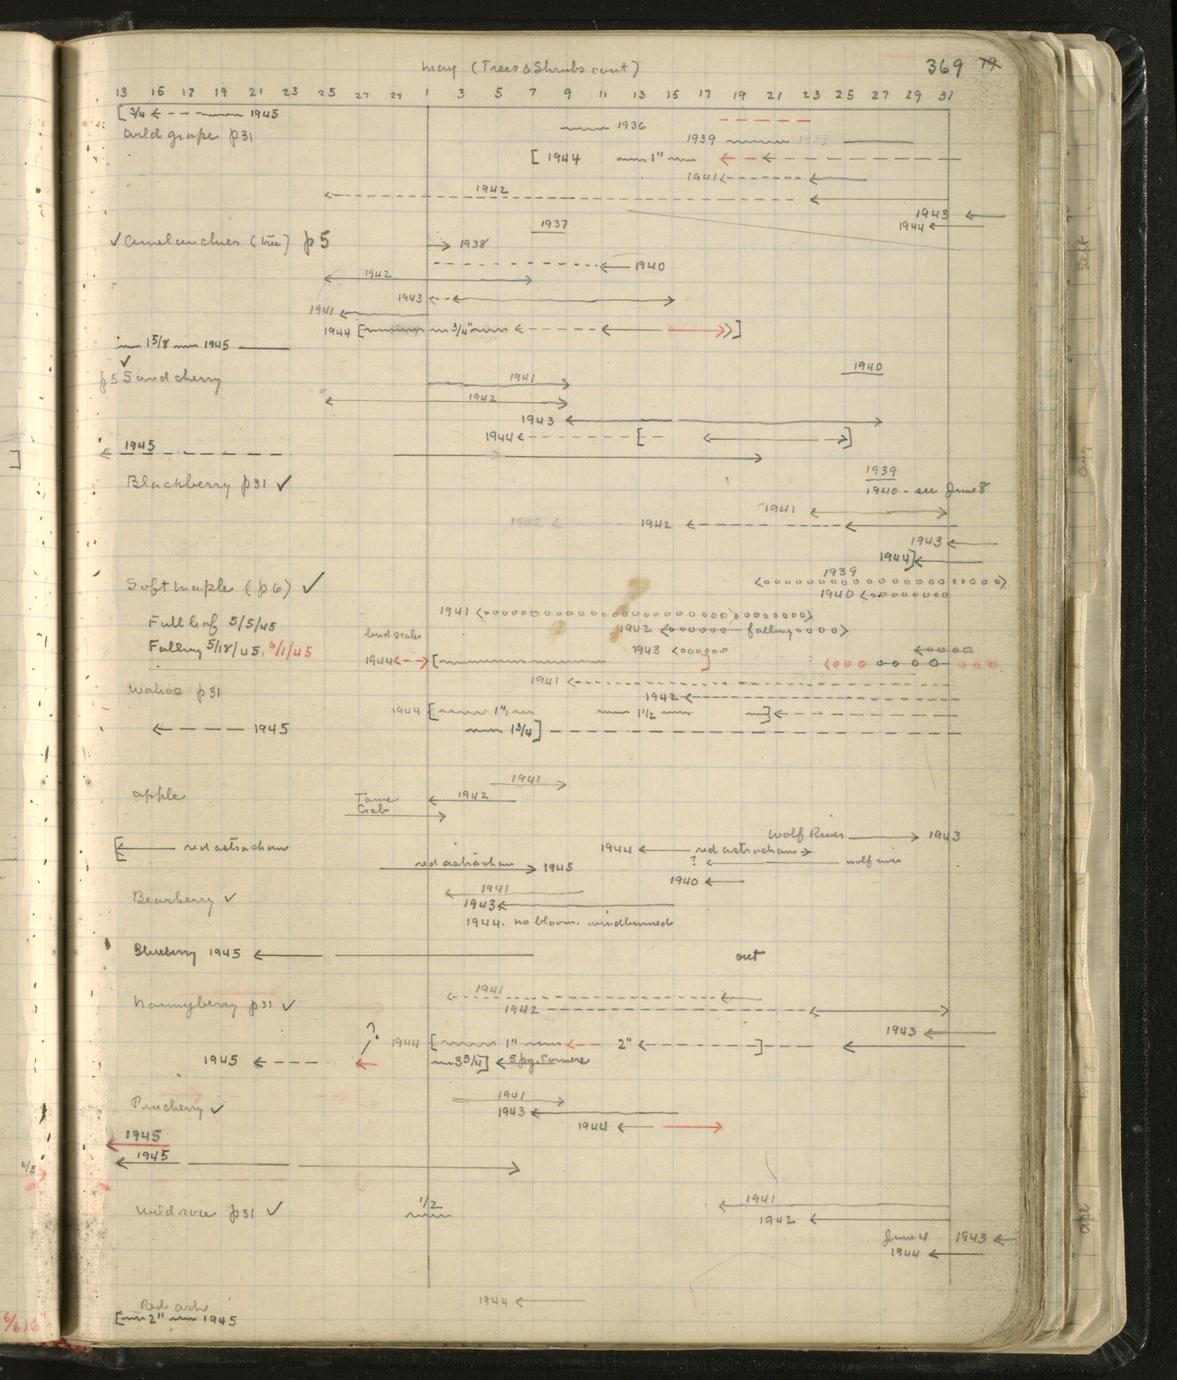 May (Trees & Shrubs cont) 369 79
13 15 17 19 21 23 25 27 29 1 3 5 7 9 11 13 15 17 19 21 23 25 27 29 31
[ 3/4 1945
Wild grape p31 1936
1939 1939
[ 1944 1"
1941
1942
1943
1944
1937
✓ Amelanchier (tree) p5 1938
1940
1942
1943
1941
1944 [ 3/4" ]
1 5/8 1945
✓
p5 Sand cherry 1940
1941
1942
1943
1944 [ ]
1945
1939
Blackberry p31 ✓ 1940 - see June 8
1941
1942 1942
1943
1944]
1939
Soft maple (p6) ✓
1940
1941
Full leaf 5/5/45
bud scales 1942 falling
Falling 5/18/45, 6/1/45 1943
1944 [ ]
1941
p31
1942
1944 [ 1" 1 1/2 ]
1945 1 3/4]
1941
apple Tame Crab 1942
Wolf River 1943
[ red astrachan 1944 red astrachan
red astrachan 1945 ? wolf river
1940
Bearberry ✓ 1941
1943
1944. no bloom. windburned
Blueberry 1945 out
1941
Nannyberry p31 ✓ 1942
1943
? 1944 [ 1" 2" ]
1945 3 3/4] Spg. Corners
1941
Pincherry ✓ 1943
1944
1945
1945
1/2 1941
Wild rose p31 ✓ 1942
June 4 1943
1944
Red ash 1944
[ 2" 1945